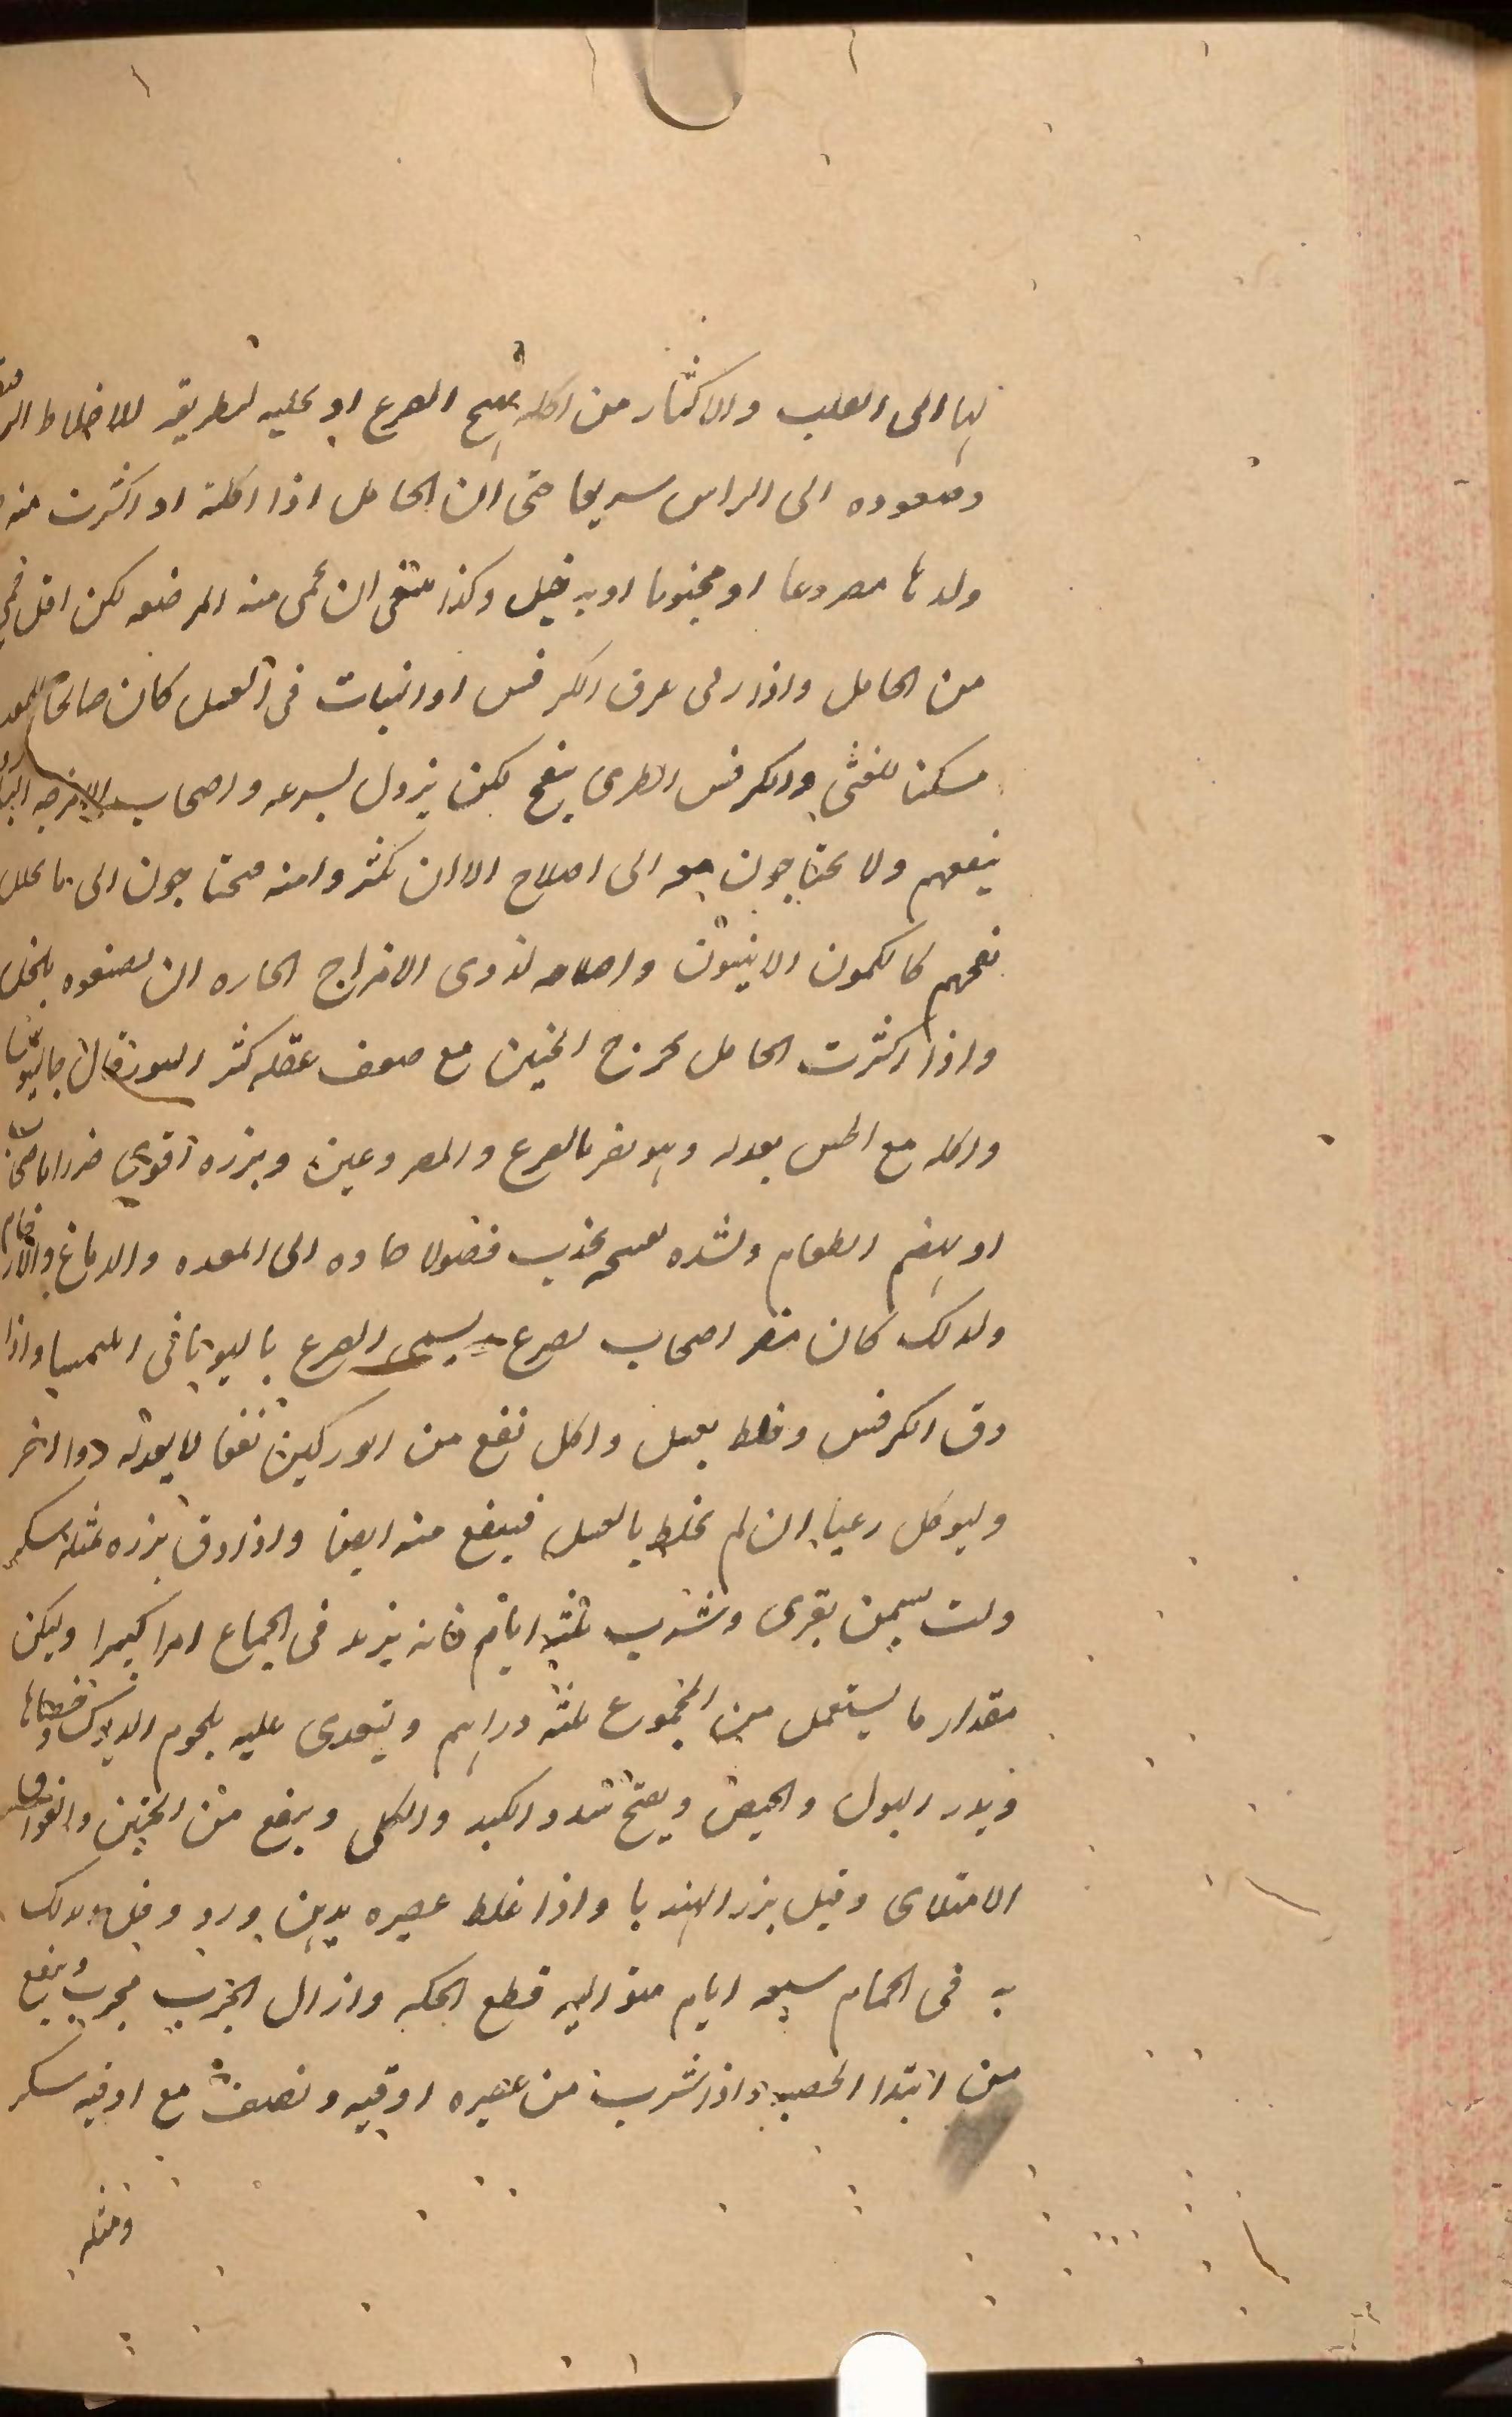 لها الى القلب والاكثار من اكله يهيج الصرع او يجلبه لتطريقه للاخلاط
وصعوده الى الراس سريعا حتى ان الحامل اذا اكلته او اكثرت منه
ولدها مصروعا او مجنونا او به خبل وكذا ينبغى ان تحمى منه المرضعه لكن اقل
من الحامل واذا ربى عرق الكرفس او النبات فى العسل كان صالحا للمعده
مسكنا للغثى والكرفس الطرى ينفخ لكن يزول بسرعه واصحاب الامزجه
ينفعهم ولا يحتاجون معه الى اصلاح الا ان كثروا منه فيحتاجون الى ما يحلل
نفخهم كالكمون الانيسون واصلاحه لذوى الامزاج الحاره ان يصنعوه بالخل
واذا اكثرت الحامل يخرج الجنين مع ضعف عقله كثير قال جالينوس
واكله مع الخس يعدله وهو يضر بالصرع والمصروعين وبزره اقوى ضررا
او يهضم الطعام ولشده تفتيحه يجذب فضولا حاده الى المعده والدماغ والارحام
ولذلك كان مضر اصحاب لصرع يسمى الصرع باليونانى واذا
دق الكرفس وخلط بعسل واكل نفع من الوركين نفعا لا يعدله دوا اخر
وليوكل رعيا ان لم يخلط بالعسل فينفع منه ايضا واذا دق بزره بمثله سكر
ولت بسمن بقرى وشرب ثلثه ايام فانه يزيد فى الجماع امرا كبيرا وليكن
مقدار ما يستعمل من المجموع ثلثه دراهم ويتغدى عليه بلحوم الديوك
ويدر البول والحيض ويفتح سدد الكبد والكلى وينفع من الجنين والفواق
الامتلاى وقيل بزر الهندبا واذا خلط عصيره بدهن ورد وخل ودلك
به فى الحمام سبعه ايام متواليه قطع الحكه وازال الجرب مجرب وينفع
من ابتدا الحصبه واذا شرب من عصيره اوقيه ونصف مع اوقيه سكر
ومثله